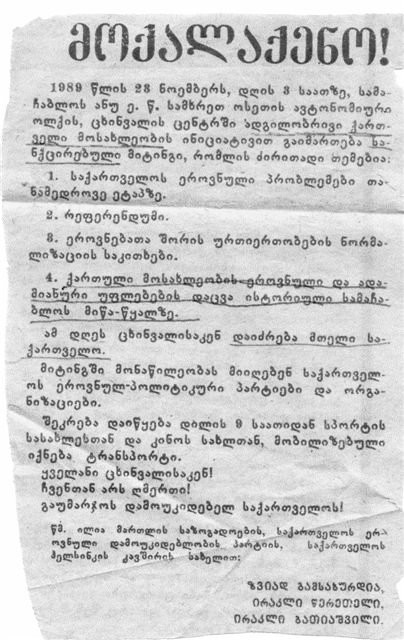 მოქალაქენო!
1989 წლის 23 ნოემბერს, დღის 3 საათზე, სამა-
ჩაბლოს ანუ ე. წ. სამხრეთ ოსეთის ავტონომიური
ოლქის, ცხინვალის ცენტრში ადგილობრივი ქართ-
ველი მოსახლეობის ინიციატივით გაიმართება სა-
ნქცირებული მიტინგი, რომლის ძირითადი თემებია:
1. საქართველოს ეროვნული პრობლემები თა-
ნამედროვე ეტაპზე.
2. რეფერენდუმი.
3. ეროვნებათა შორის ურთიერთობების ნორმა-
ლიზაციის საკითხები.
4. ქართული მოსახლეობის ეროვნული და ადა-
მიანური უფლებების დაცვა ისტორიული სამაჩა-
ბლოს მიწა-წყალზე.
ამ დღეს ცხინვალისაკენ დაიძრება მთელი სა-
ქართველო.
მიტინგში მონაწილეობას მიიღებენ საქართველ-
ოს ეროვნულ-პოლიტიკური პარტიები და ორგა-
ნიზაციები.
შეკრება დაიწყება დილის 9 საათიდან სპორტის
სასახლესთან და კინოს სახლთან, მობილიზებული
იქნება ტრანსპორტი.
ყველანი ცხინვალისაკენ!
ჩვენთან არს ღმერთი!
გაუმარჯოს დამოუკიდებელ საქართველოს!
წმ. ილია მართლის საზოგადოების, საქართველოს ერ-
ოვნული დამოუკიდებლობის პარტიის, საქართველოს
ჰელსინკის კავშირის სახელით:
ზვიად გამსახურდია,
ირაკლი წერეთელი,
ირაკლი ბათიაშვილი.